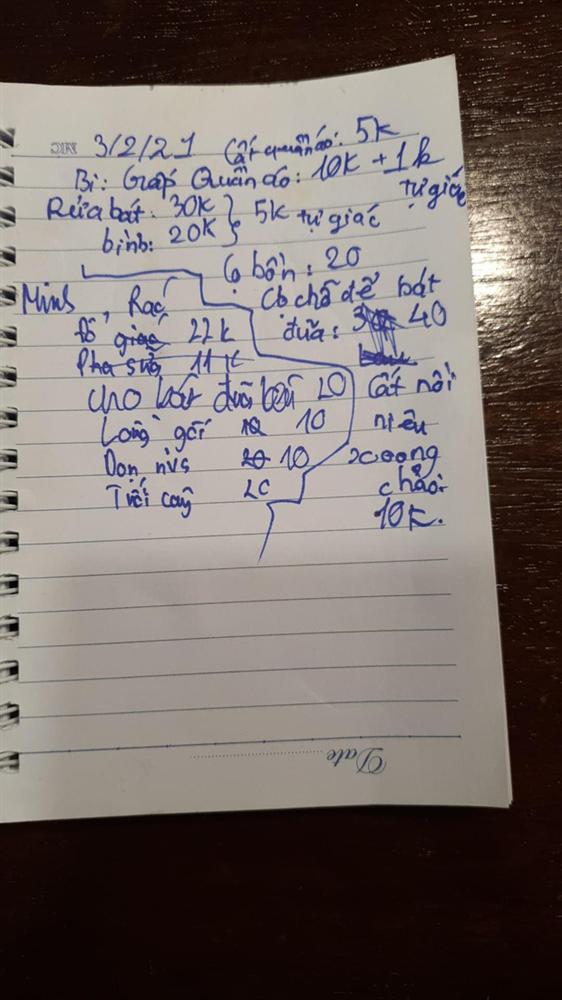 3/2/21 Cất quần áo: 5k
Bi: Gấp Quần áo: 10k + 1k
tự giác
Rửa bát: 30k } 5k tự giác
bình: 20k
Cọ bồn: 20
Minh, Rác
Cọ chỗ để bát
đũa: 40
Đổ giác 22k
Pha sữa 11k
cho bát đũa bẩn 20
Cất nồi
Lồng gối 10
niêu
Dọn nvs 20 10
xoong
Tưới cây 20
chảo:
10k.
Date